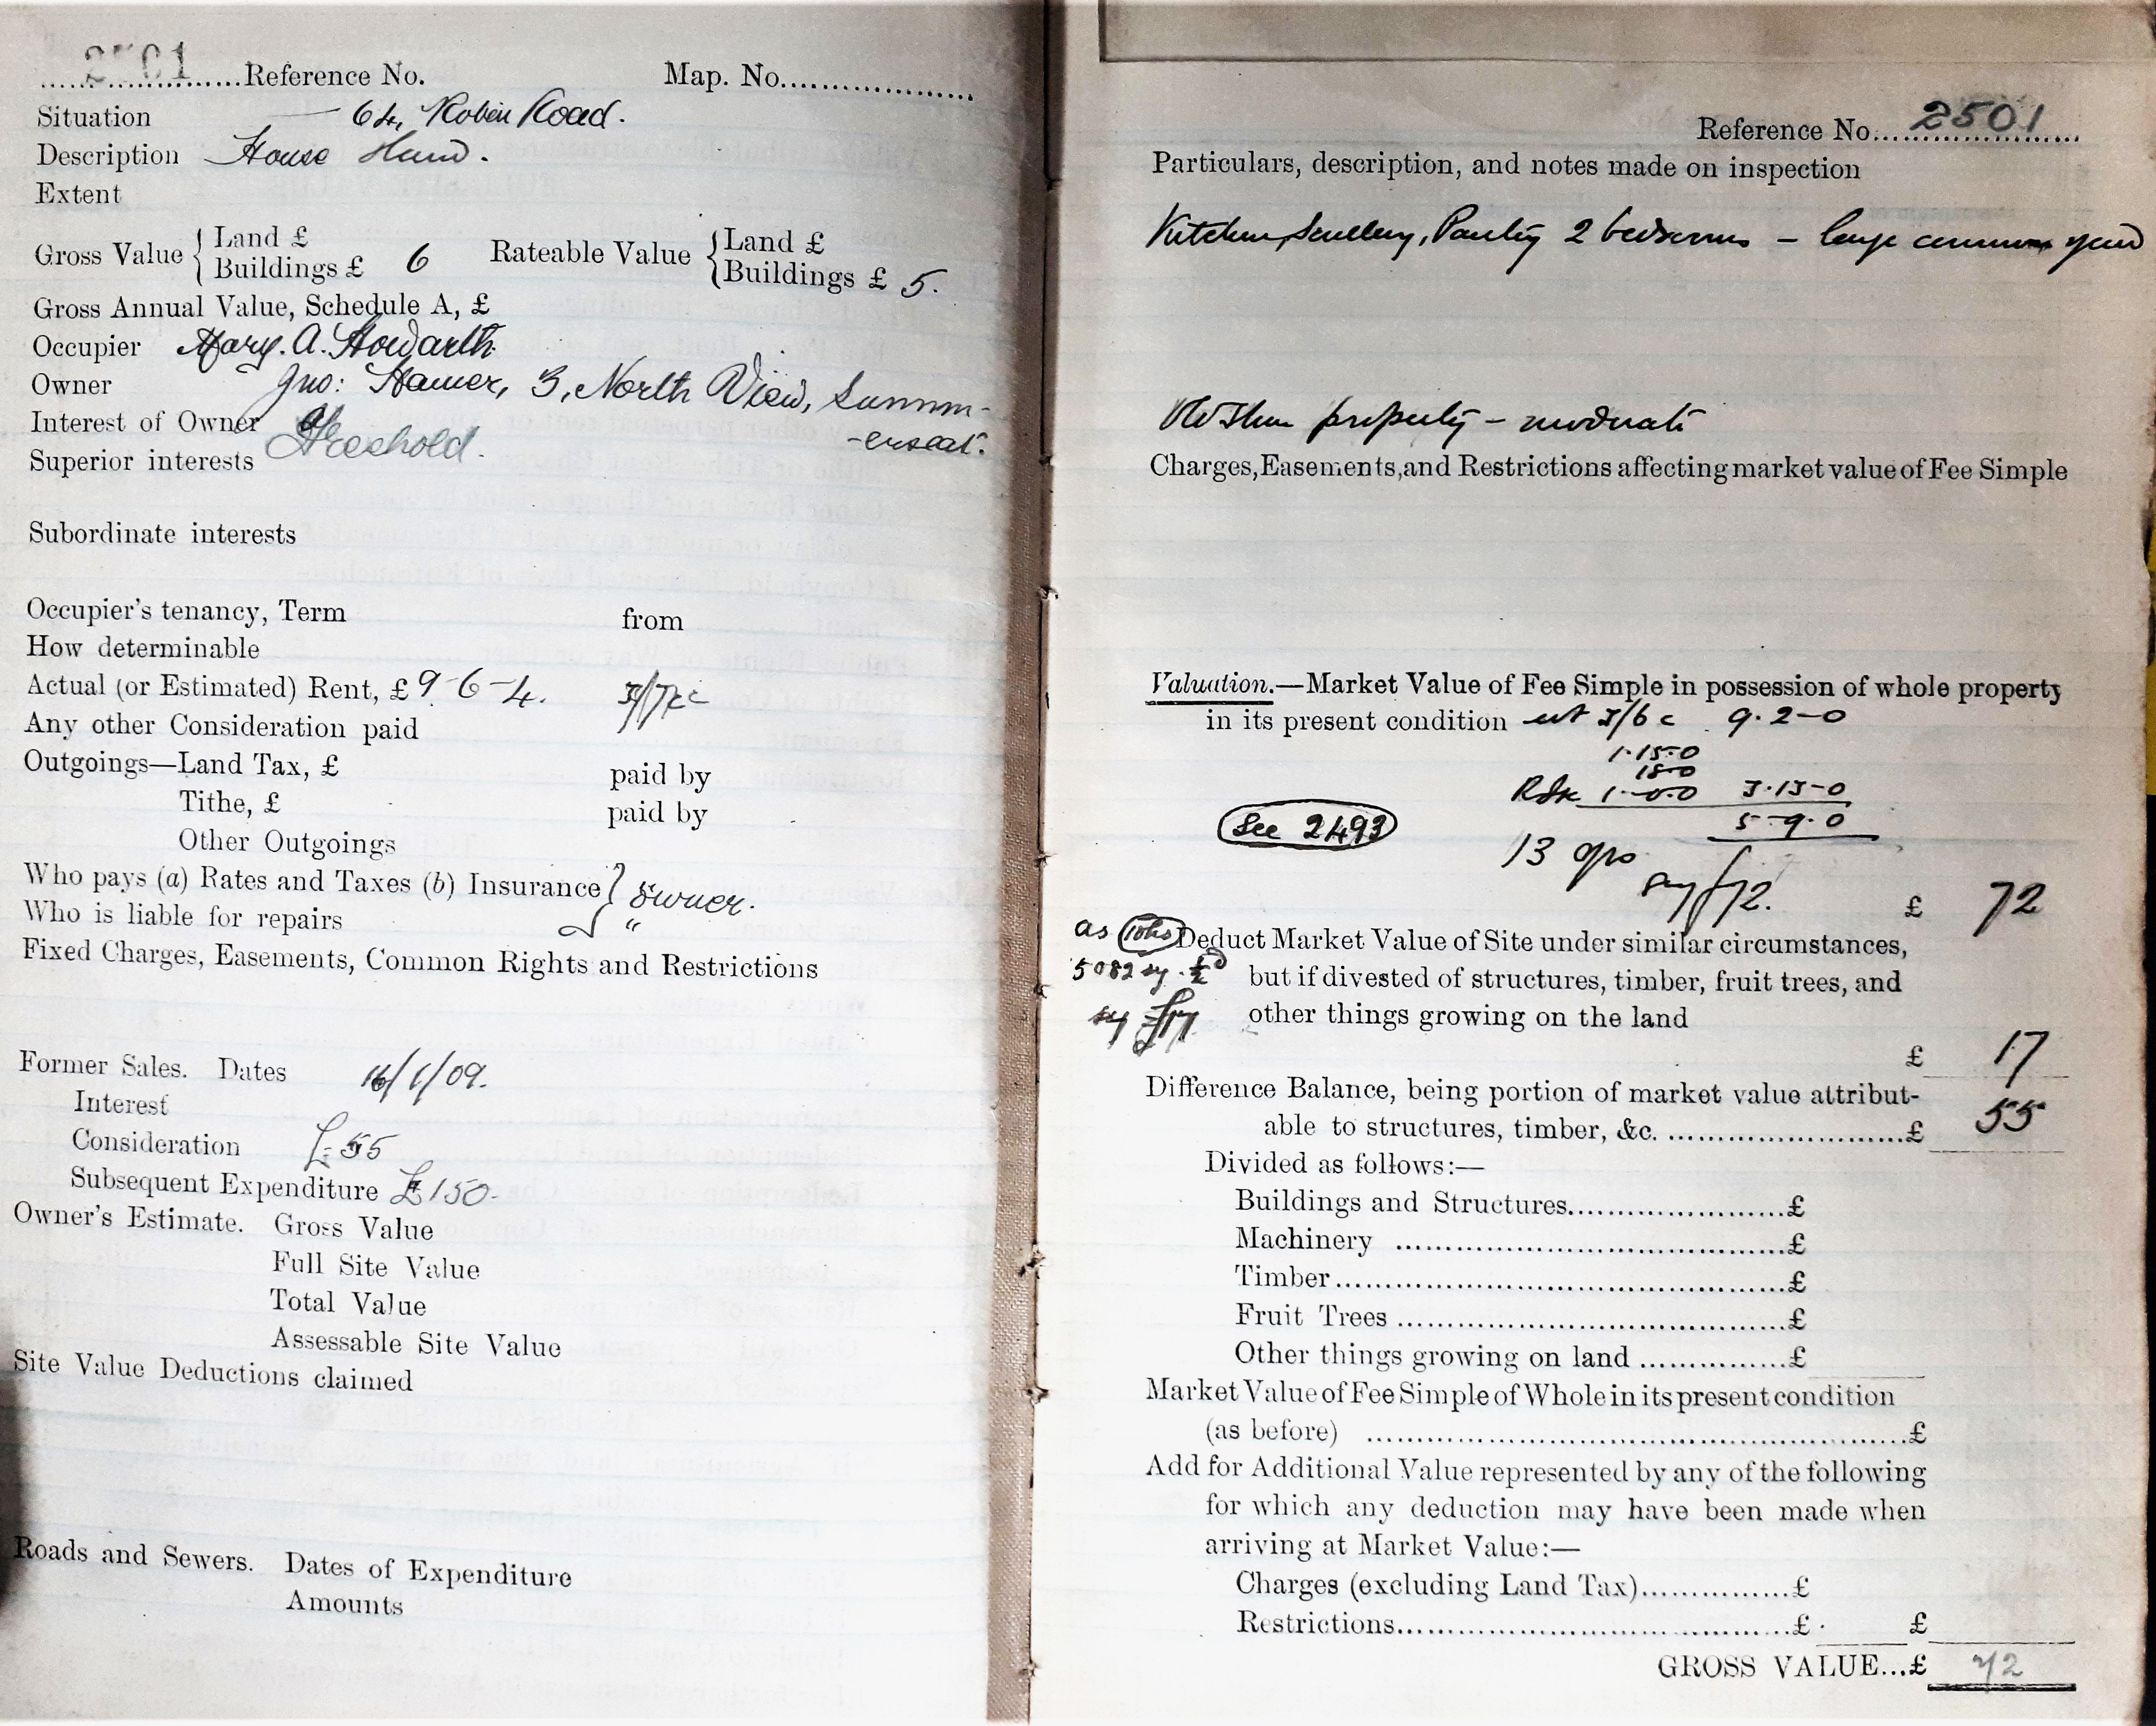 2501 Reference No. Map. No.
Situation — 64, Robin Road.
Description House
Extent
Gross Value { Land £
Buildings £ 6
Rateable Value { Land £
Buildings £ 5.
Gross Annual Value, Schedule A, £
Occupier Mary. A. Howarth
Owner Jno: Hamer, 3, North View, Summ-
-erseat.
Interest of Owner Freehold.
Superior interests
Subordinate interests
Occupier's tenancy, Term from
How determinable
Actual (or Estimated) Rent, £ 9-6-4. 3/7
Any other Consideration paid
Outgoings—Land Tax, £ paid by
Tithe, £ paid by
Other Outgoings
Who pays (a) Rates and Taxes (b) Insurance } owner.
Who is liable for repairs "
Fixed Charges, Easements, Common Rights and Restrictions
Former Sales. Dates 16/1/09.
Interest
Consideration £55
Subsequent Expenditure £150-
Owner's Estimate. Gross Value
Full Site Value
Total Value
Assessable Site Value
Site Value Deductions claimed
Roads and Sewers. Dates of Expenditure
Amounts
Reference No. 2501
Particulars, description, and notes made on inspection
Kitchen, Scullery, Pantry 2 bedrooms – large common yard
property – moderate
Charges, Easements, and Restrictions affecting market value of Fee Simple
Valuation.—Market Value of Fee Simple in possession of whole property
in its present condition 3/6 9.2-0
1.15.0
18-0
1-0.0 3.13-0
5-9.0
See 2493
13 yrs
say £72.
£ 72
as
Deduct Market Value of Site under similar circumstances,
5082 sy. ½d
but if divested of structures, timber, fruit trees, and
sy £17
other things growing on the land
£ 17
Difference Balance, being portion of market value attribut-
able to structures, timber, &c. £ 55
Divided as follows:—
Buildings and Structures £
Machinery £
Timber £
Fruit Trees £
Other things growing on land £
Market Value of Fee Simple of Whole in its present condition
(as before) £
Add for Additional Value represented by any of the following
for which any deduction may have been made when
arriving at Market Value:—
Charges (excluding Land Tax) £
Restrictions £ £
GROSS VALUE...£ 72